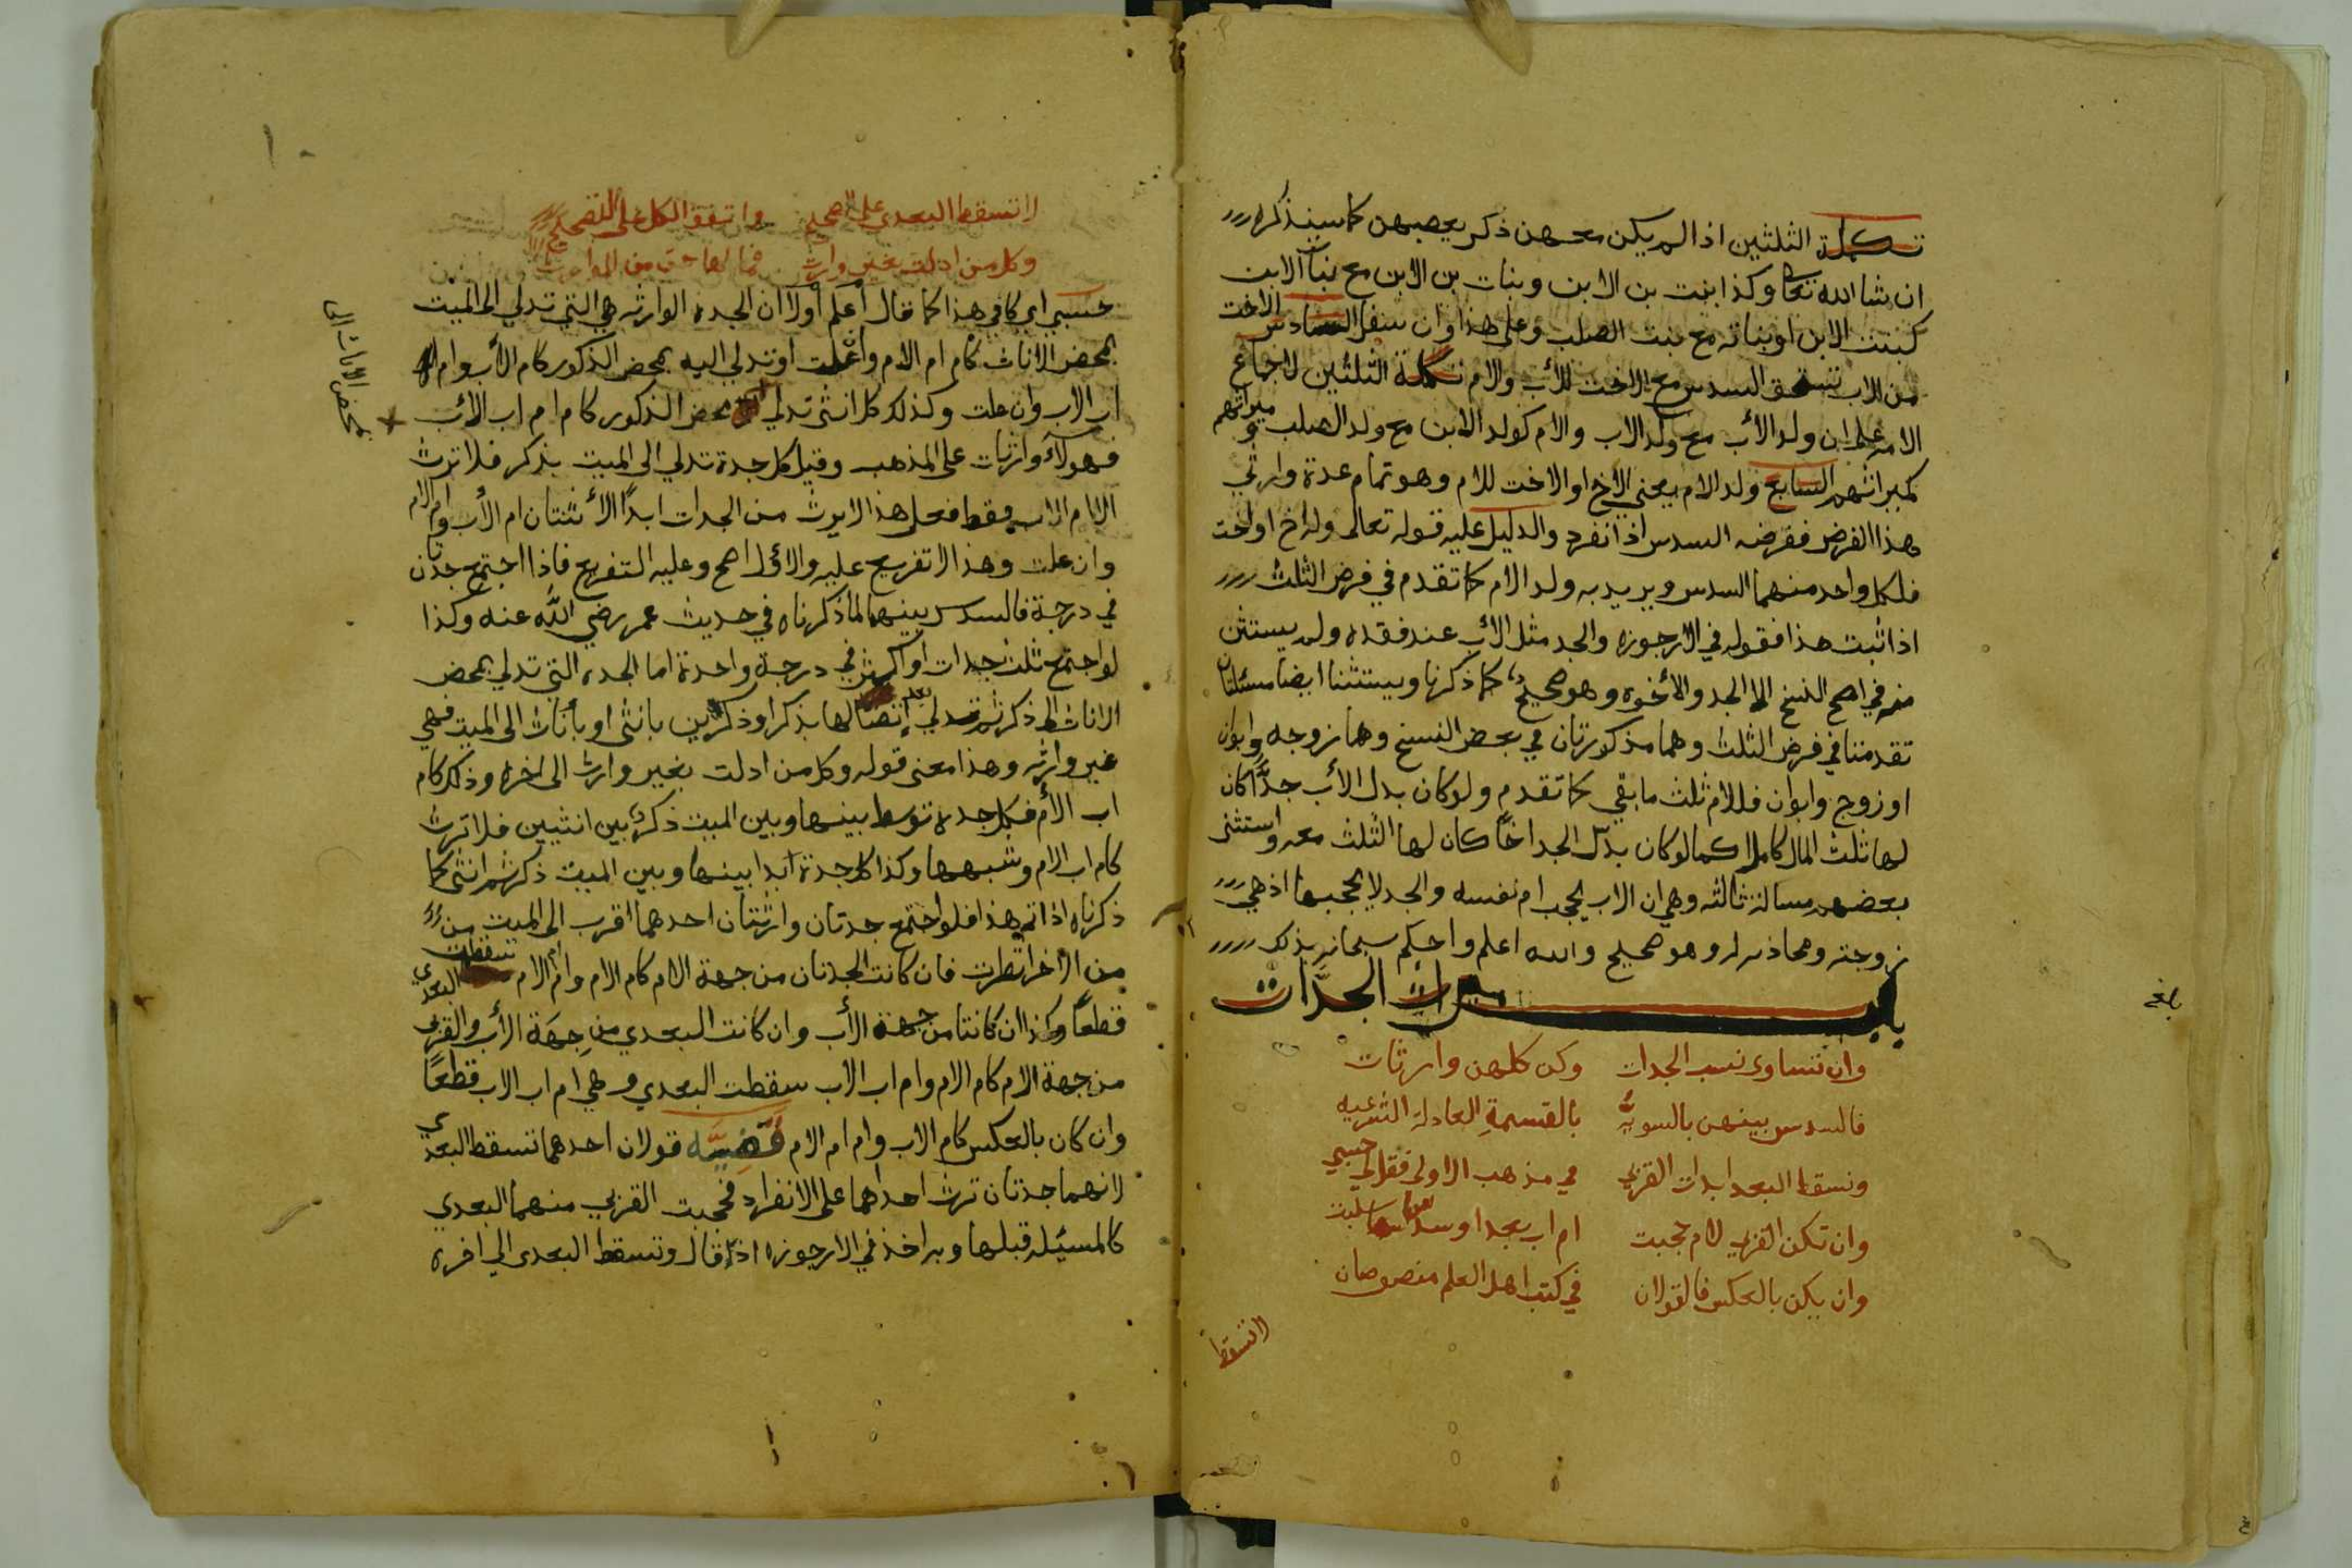 تكملة الثلثين اذا لم يكن معهن ذكر يعصبهن كما سنذكره
ان شا الله تعا وكذا بنت بن الابن وبنات بن الابن مع بنات الابن
كبنت الابن او بناته مع بنت الصلب وعلى هذا وان سفل السادس الاخت
من الاب تستحق السدس مع الاخت للأب والام تكملة الثلثين لاجماع
الامه على ان ولد الأب مع ولد الاب والام كولد الابن مع ولد الصلب وميراثهم
كميراثهم السابع ولد الام يعني الاخ او الاخت للام وهو تمام عدة وارثي
هذا الفرض ففرضه السدس اذا انفرد والدليل عليه قوله تعالى وله اخ او اخت
فلكل واحد منهما السدس ويريد به ولد الام كما تقدم في فرض الثلث
اذا ثبت هذا فقوله في الارجوزه والجد مثل الأب عند فقده ولم يستثن
منه في اصح النسخ الا الجد والأخوه وهو صحيح كما ذكرنا ويستثنا ايضا مسئلتان
تقدمتا في فرض الثلث وهما مذكورتان في بعض النسخ وهما زوجه وابوان
او زوج وابوان فللام ثلث ما بقي كما تقدم ولو كان بدل الأب جدًّا كان
لها ثلث المال كاملا كما لو كان بدل الجد اخًا كان لها الثلث معه واستثنى
بعضهم مسالة ثالثه وهي ان الاب يحجب ام نفسه والجد لا يحجبها اذ هي
زوجته ومحاذيه له وهو صحيح والله اعلم واحكم سبحانه بذلك
باب ميراث الجدَّات
وان تساوى نسب الجدات وكن كلهن وارثات
فالسدس بينهن بالسويَّه بالقسمةِ العادلة الشرعيه
وتسقط البعدا بذات القربي في مذهب الاولى فقل لي حسبي
وان تكن القربي لام حجبت ام اب بعدا وسدسا سلبت
وان يكن بالعكس فالقولان في كتب اهل العلم منصوصان
لا تسقط
بلغ
لا تسقط البعدى على الصحيح واتفق الكل على التصحيح
وكل من ادلت بغير وارث فما لها حق من الموارث
حسبي اي كافي هذا كما قال اعلم أولاً ان الجده الوارثه هي التي تدلي الى الميت
بمحض الاناث كام ام الام وان علت او تدلي اليه بمحض الذكور كام الأب وام
اب الاب وان علت وكذلك كل انثى تدلي بمحض الذكور كام ام اب الأب
فهولآء وارثات على المذهب وقيل كل جدة تدلي الى الميت بذكر فلا ترث
الا ام الاب فقط فعلى هذا لا يرث من الجدات ابدًا الا ثنتان ام الأب وام الام
وان علت وهذا لا تفريع عليه والاول اصح وعليه التفريع فاذا اجتمع جدتان
في درجة فالسدس بينهما لما ذكرناه في حديث عمر رضي الله عنه وكذا
لو اجتمع ثلث جدات او اكثر في درجة واحدة اما الجده التي تدلي بمحض
الاناث الى ذكر ثم تدلي بعد اتصالها بذكر او ذكرين بانثى او بأناث الى الميت فهي
غير وارثه وهذا معنى قوله وكل من ادلت بغير وارث الى اخره وذلك كام
اب الأم فكل جده توسط بينها وبين الميت ذكر بين انثيين فلا ترث
كام اب الام وشبهها وكذا كل جدة ابدا بينها وبين الميت ذكر ثم انثى كما
ذكرناه اذا تم هذا فلو اجتمع جدتان وارثتان احدهما اقرب الى الميت من
من الاخرا نظرت فان كانت الجدتان من جهة الام كام الام وام ام الام تسقطت البعدى
قطعًا وكذا ان كانتا من جهة الأب وان كانت البعدي من جِهَة الأب والقربى
من جهة الام كام الام وام اب الاب سقطت البعدي وهي ام اب الاب قطعًا
وان كان بالعكس كام الاب وام ام الام ففيه قولان احدهما تسقط البعدى
لانهما جدتان ترث احداهما على الانفراد فحجبت القربي منهما البعدي
كالمسئله قبلها وبه اخذ في الارجوزه اذ قال وتسقط البعدى الى اخره